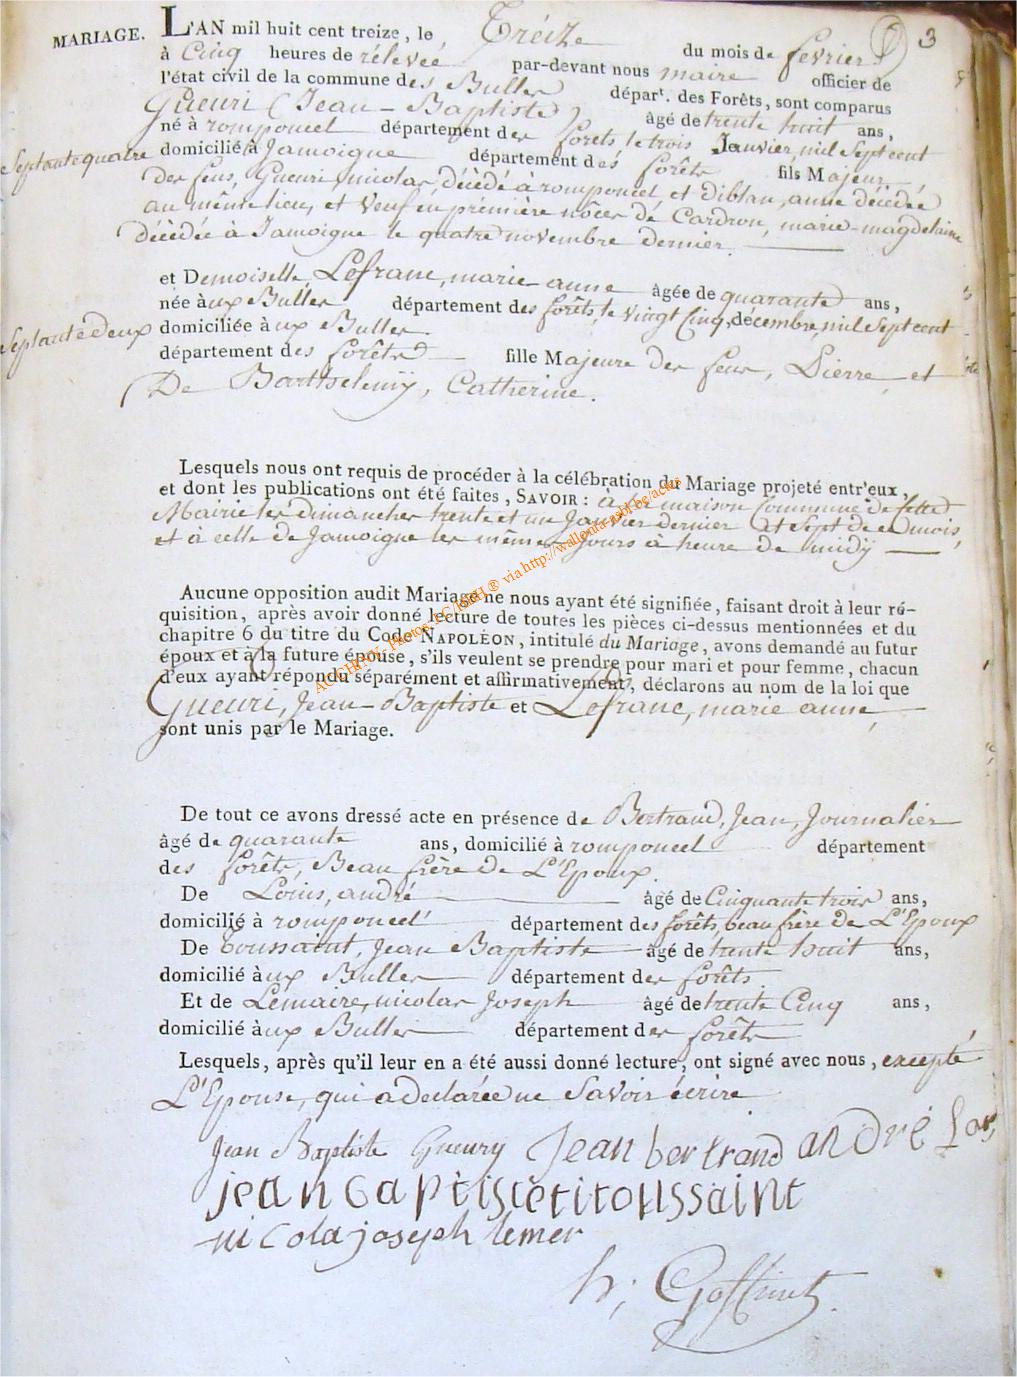 3
MARIAGE. L'AN mil huit cent treize, le Treize du mois de fevrier
à Cinq heures de rélevée par-devant nous maire officier de
l'état civil de la commune des Bulles départ. des Forêts, sont comparus
Gueuri (Jean-Baptiste) âgé de trente huit ans,
né à romponcel département des forets, le trois Janvier, mil Sept cent
Septante quatre domicilié à Jamoigne département des forêts fils Majeur
des feus, Gueuri, nicolas, décèdé à romponcel, et Diblan, anne décèdée
au même lieu, et Veuf en première nôces de Cardron, marie-magdelaine
décèdée à Jamoigne le quatre novembre dernier.
et Demoiselle Lefranc, marie anne âgée de quarante ans,
née àux Bulles département des forêts, le vingt Cinq, décembre, mil Sept cent
Septante deux domiciliée àux Bulles
département des forêts fille Majeure des feus, Pierre, et
De Barthselemÿ, Catherine.
Lesquels nous ont requis de procéder à la célébration du Mariage projeté entr'eux,
et dont les publications ont été faites, SAVOIR : à la maison Commune de cette
Mairie les dimanches trente et un Janvier dernier et Sept de ce mois,
et à celle de Jamoigne les mêmes jours à heure de midÿ
Aucune opposition audit Mariage ne nous ayant été signifiée, faisant droit à leur ré-
quisition, après avoir donné lecture de toutes les pièces ci-dessus mentionnées et du
chapitre 6 du titre du Code NAPOLÉON, intitulé du Mariage, avons demandé au futur
époux et à la future épouse, s'ils veulent se prendre pour mari et pour femme, chacun
d'eux ayant répondu séparément et affirmativement, déclarons au nom de la loi que
Gueuri, Jean-Baptiste et Lefranc, marie anne,
sont unis par le Mariage.
De tout ce avons dressé acte en présence de Bertrand, Jean, Journalier
âgé de quarante ans, domicilié à romponcel département
des forêts, Beau frère de L'Epoux.
De Louis, andré âgé de Cinquante trois ans,
domicilié à romponcel département des forêts, beau frère de L'Epoux
De Toussaint, Jean Baptiste âgé de trente huit ans,
domicilié àux Bulles département des forêts
Et de Lemaire, nicolas Joseph âgé de trente Cinq ans,
domicilié àux Bulles département des forêts
Lesquels, après qu'il leur en a été aussi donné lecture, ont signé avec nous, excepté
L'Epouse, qui a declarée ne Savoir écrire
Jean Baptiste Gueury Jean bertrand andré
jean baptiste toussaint
nicola joseph lemer
h; Goffinet